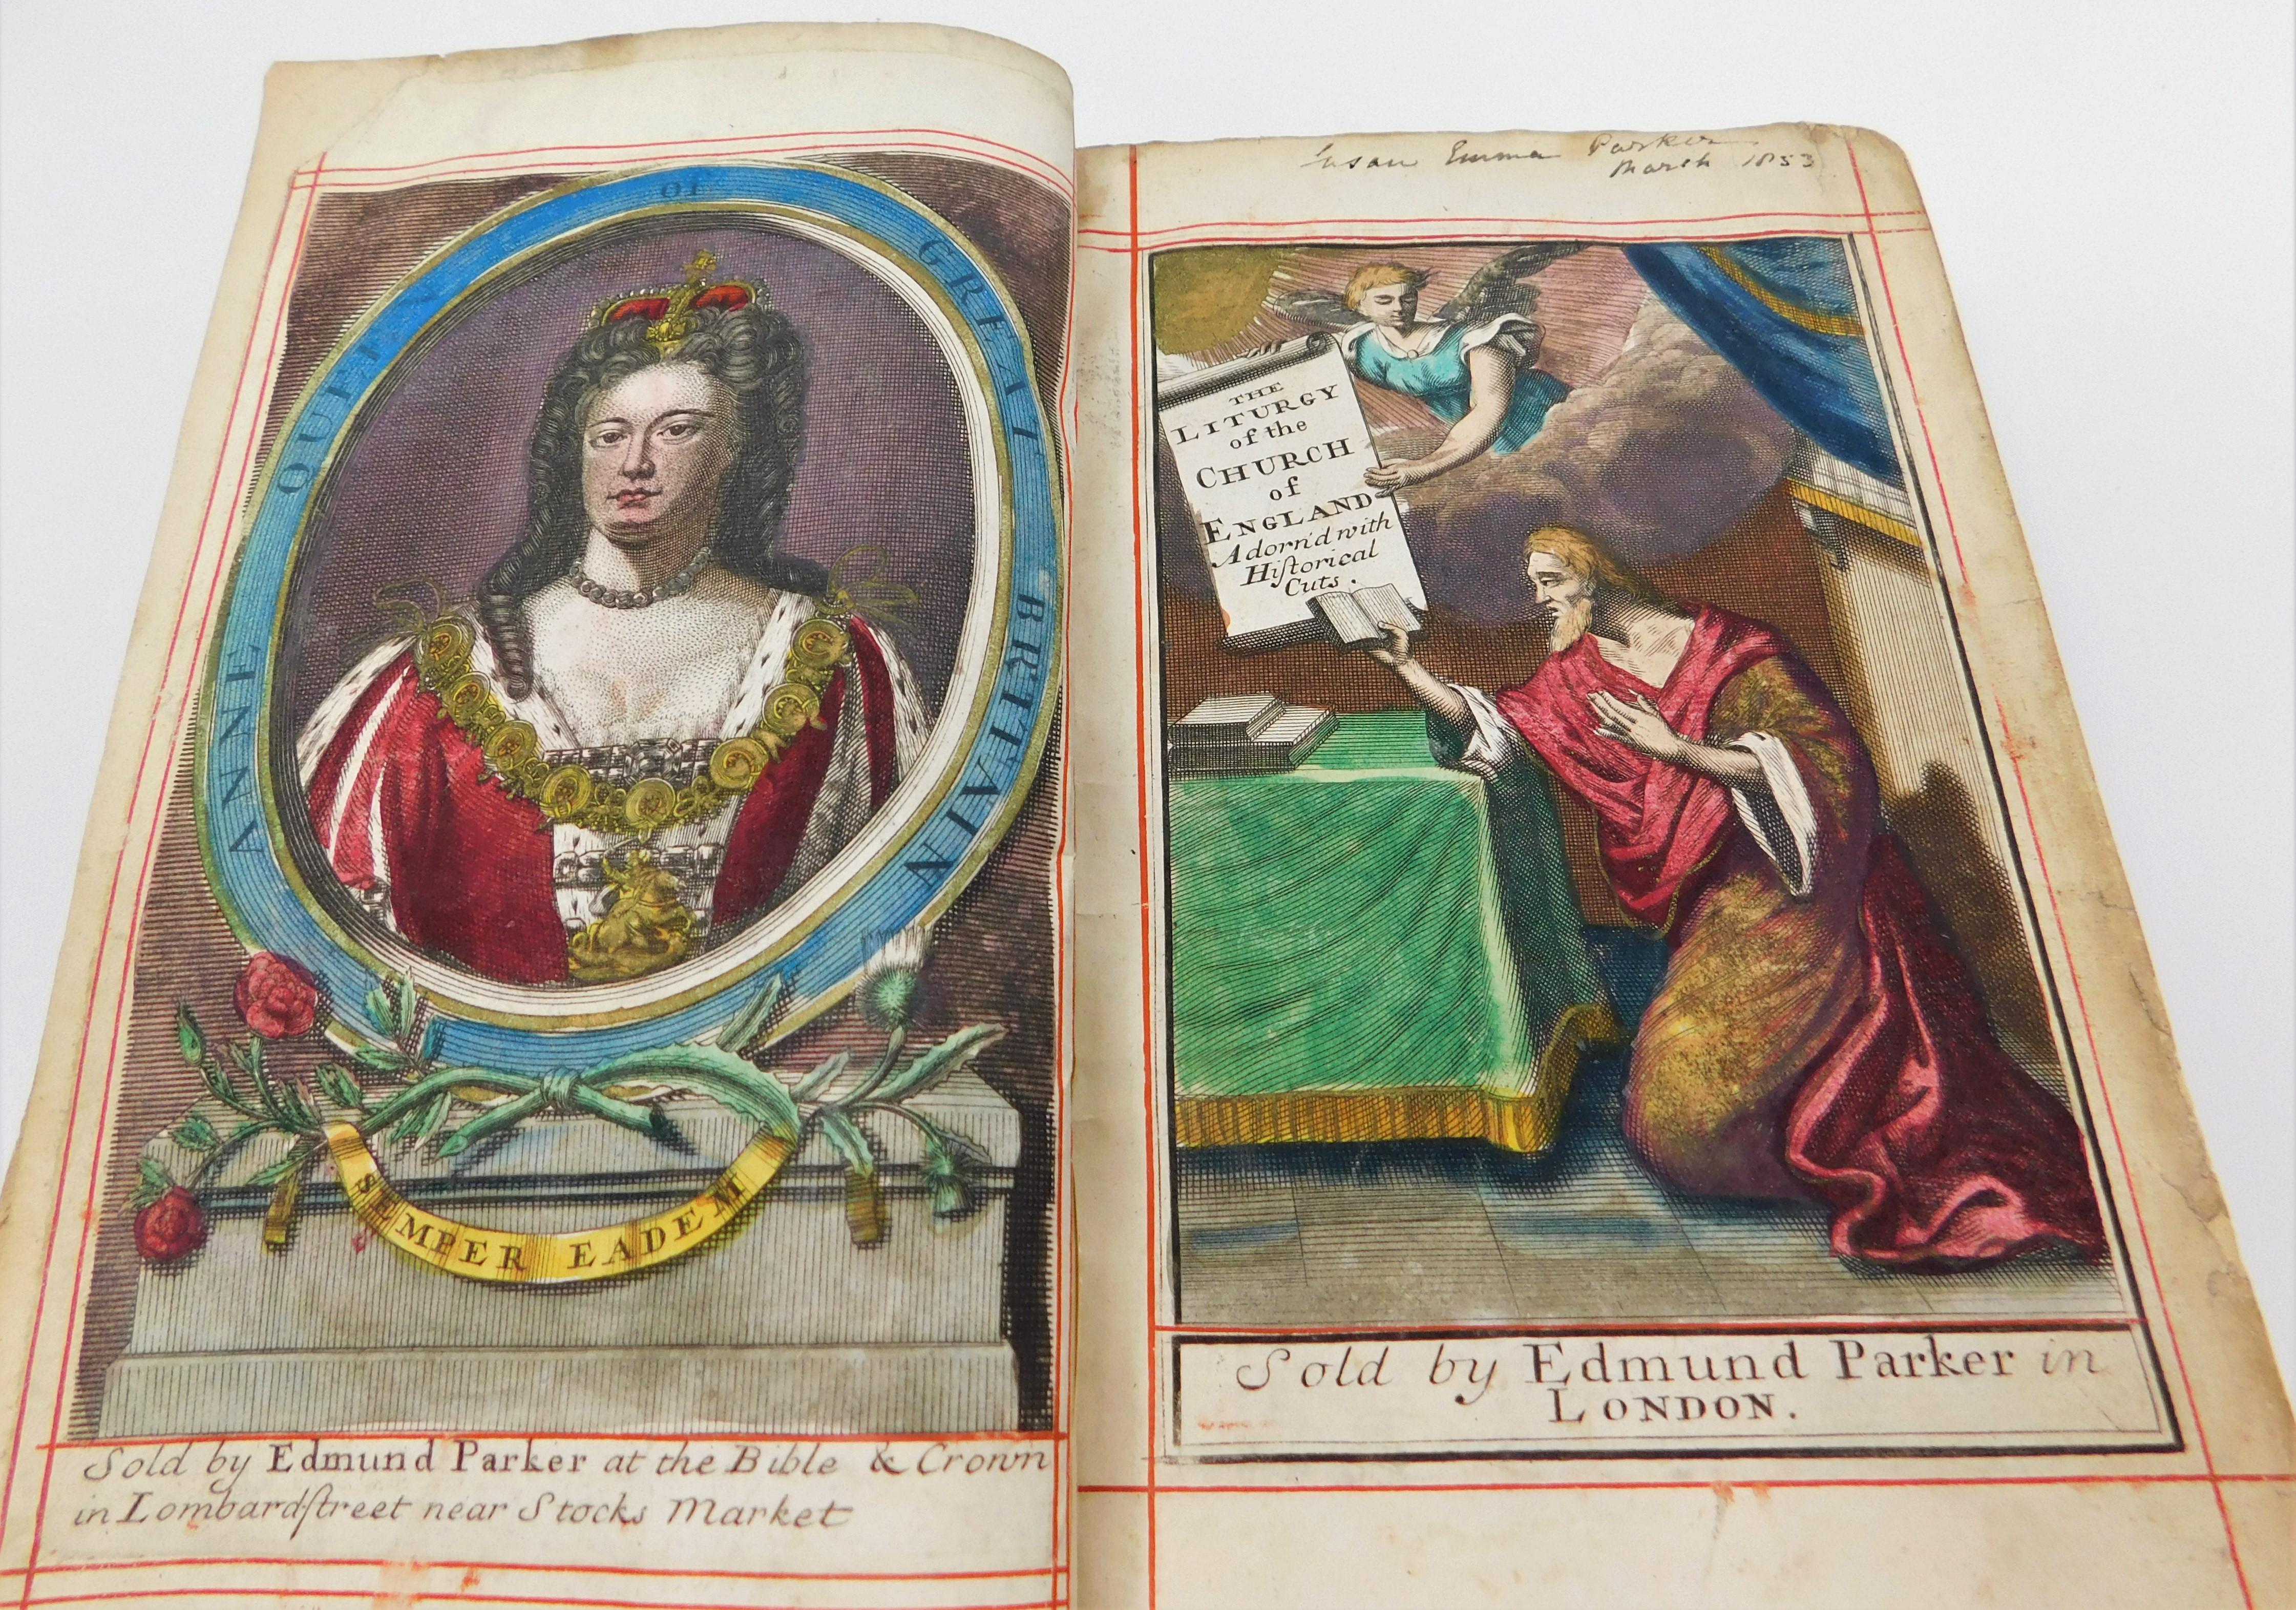 ANNE QUEEN OF GREAT BRITAIN
SEMPER EADEM
Sold by Edmund Parker at the Bible & Crown
in Lombardſtreet near Stocks Market
Susan Emma Parker
March 1853
THE
LITURGY
of the
CHURCH
of
ENGLAND
Adorn'd with
Hiſtorical
Cuts.
Sold by Edmund Parker in
LONDON.